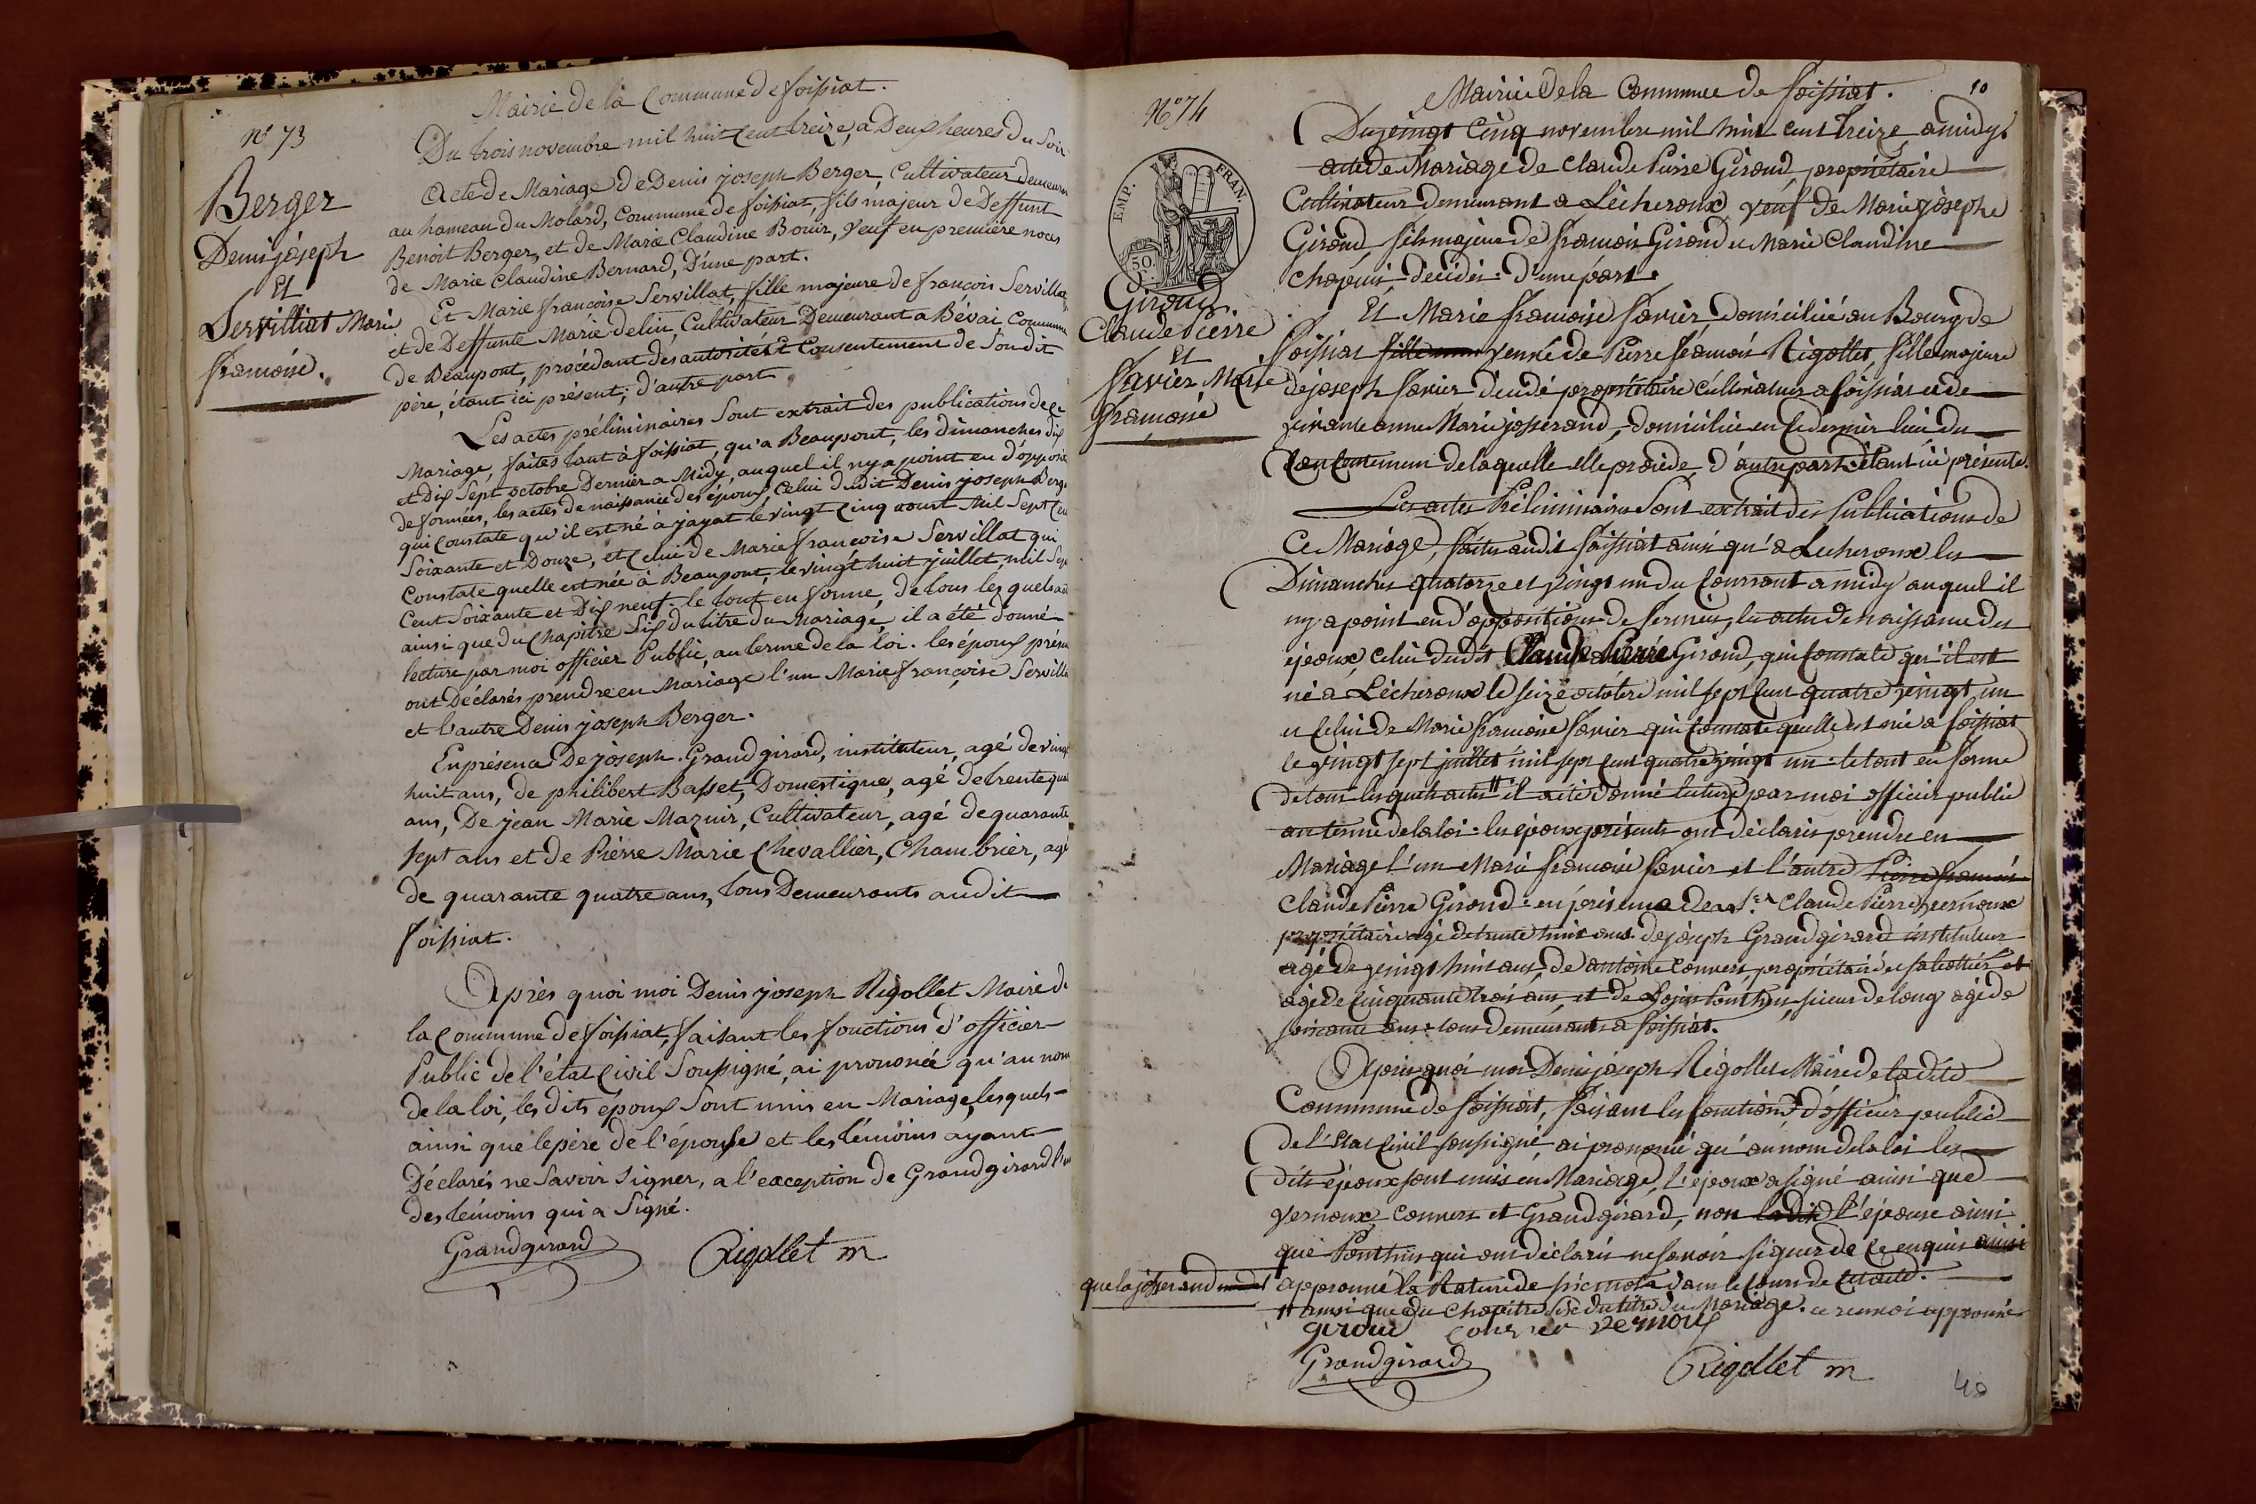 Mairie de la Commune de foissiat.
N° 73
Du trois novembre mil huit Cent treize, a Deux heures du Soir
Acte de Mariage de Denis joseph Berger, Cultivateur demeurant
au hameau du Molard, Commune de foissiat, fils majeur de Deffunt
Benoit Berger, et de Marie Claudine Bouir, Veuf en premiere noces
de Marie Claudine Bernard, D'une part.
Berger
Denis joseph
Et
Servillat Marie
francoise.
Et Marie francoise Servillat, fille majeure de francois Servillat
et de Deffunte Marie Delin, Cultivateur Demeurant a Bévai Commune
de Beaupont, procédant des autorités Et Consentement de Son dit
père, étant ici présent; d'autre part
Les actes préliminaires Sont extrait des publications de ce
Mariage, faites tant à foissiat, qu'a Beaupont, les dimanches dix
et Dix Sept octobre Dernier a Midy, auquel il ny a point eu d'opposi
de formées, les actes de naissance des époux, Celui dudit Denis joseph Berge
qui Constate qu'il est né à jayat le vingt Cinq aout Mil Sept Cen
Soixante et Douze, et Celui de Marie francoise Servillat qui
Constate quelle est née à Beaupont, le vingt huit juillet, mil Sept
Cent Soixante et Dix neuf. le tout en forme, de tous les quels
ainsi que du Chapitre Six du titre du Mariage, il a été donné
lecture par moi officier Public, au terme de la loi. les époux présen
ont Déclarés prendre en Mariage l'un Marie françoise Servilla
et l'autre Denis joseph Berger.
En présence De joseph Grandgirard, instituteur, agé de vingt
huit ans, de philibert Basset, Domestique, agé de trente qua
ans, De jean Marie Mazuir, Cultivateur, agé de quarante
sept ans et de Pierre Marie Chevallier, Chambrier, agé
de quarante quatre ans, tous Demeurants audit
foissiat.
Après quoi moi Denis joseph Rigollet Maire de
la Commune de foissiat, faisant les fonctions d'officier
Public de l'état Civil Soussigné, ai prononcé qu'au nom
de la loi, les dits époux Sont unis en Mariage, lesquels
ainsi que le père de l'épouse et les témoins ayant
Déclarés ne Savoir Signer, a l'exception de Grandgirard l'un
des témoins qui a Signé.
Grandgirard
Rigollet m
Mairie de la Commune de foissiat.
10
N° 74
EMP. FRAN.
50
Du vingt Cinq novembre mil huit cent treize a midy
acte de Mariage de Claude Pierre Giroud, propriétaire
Cultivateur demeurant a Lécheroux veuf de Marie josephe
Giroud, fils majeur de francois Giroud et Marie Claudine
Chapuis, décédés. d'une part.
Giroud
Claude Pierre
Et
favier Marie
francoise
Et Marie francoise favier domiciliée au Bourg de
foissiat veuve de Pierre francois Rigollet, fille majeure
de joseph favier décédé propriétaire cultivateur a foissiat et de
vivante anne Marie josserand, domiciliée en Ce dernier lieu du
Consentement de laquelle elle procède, d'autre part. étant ici présente.
Les actes Préliminaires Sont extrait des Publications de
Ce Mariage, faites audit foissiat ainsi qu'a Lecheroux les
Dimanches quatorze et vingt un du Courrant a midy auquel il
ny a point eu d'oppositions de formées, les actes de naissance des
époux, Celui dudit Claude Pierre Giroud, qui Constate qu'il est
né a Lécheroux le Seize octobre mil sept Cent quatre vingt un
et Celui de Marie francoise favier qui Constate quelle est née a foissiat
le vingt sept juillet mil sept Cent quatre vingt un. le tout en forme
de tous lesquels actes # il a été donné lecture par moi officier public
au terme de la loi. les époux présents ont déclarés prendre en
Mariage l'un Marie francoise favier et l'autre Pierre francois
Claude Pierre Giroud. en présence de Sr. Claude Pierre Vernoux
propriétaire agé de trente huit ans. de joseph Grandgirard instituteur
agé de vingt huit ans, de antoine Convers propriétaire et sabottier et
agé de Cinquante trois ans, et de Ponthus, scieur de long agé de
soixante ans. tous demeurants a foissiat.
Après quoi moi Denis joseph Rigollet Maire de ladite
Commune de foissiat, faisant les fonctions d'officier public
de l'Etat Civil soussigné, ai prononcé qu'au nom de la loi les
dits époux sont unis en Mariage, l'époux a signé ainsi que
Vernoux, Convers et Grandgirard, non l'épouse ainsi
que Ponthus qui ont déclarés ne savoir signer de Ce enquis ainsi
que la josserand
approuvé la Rature de six mots dans le Cours de Cet acte.
# ainsi que du Chapitre Six du titre du Mariage. ce renvoi approuvé
giroud Convers Vernoux
Grandgirard
Rigollet m
40